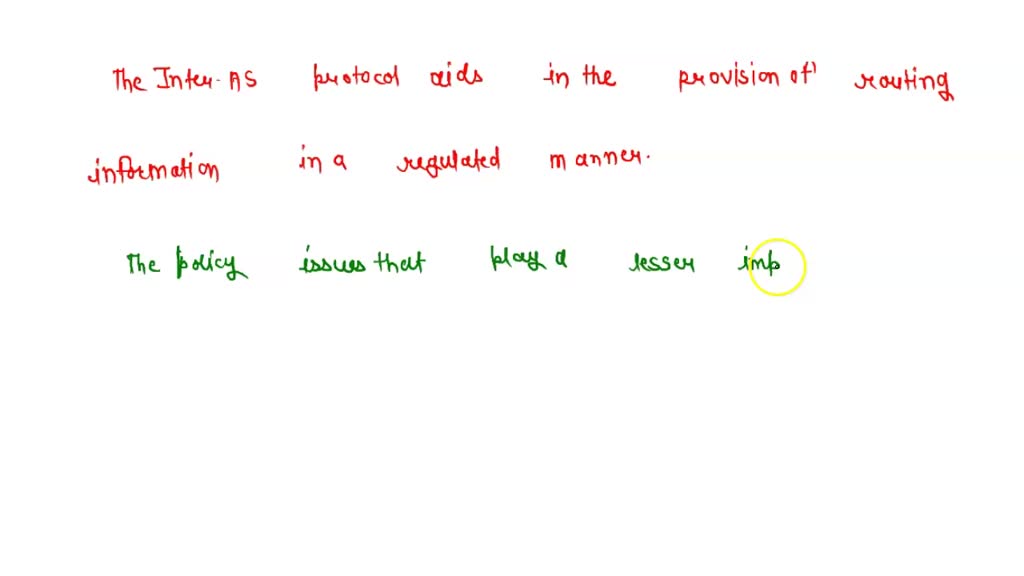 The Inter-AS protocol aids in the provision of routing
information in a regulated manner.
The policy issues that play a lesser imp